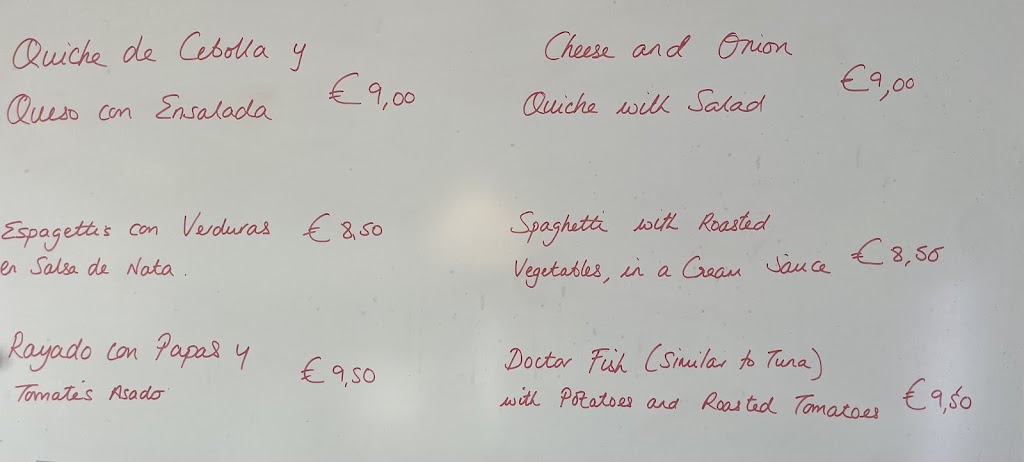 Quiche de Cebolla y
Queso con Ensalada € 9,00
Espagettis con Verduras € 8,50
en Salsa de Nata.
Rayado con Papas y
Tomates Asado € 9,50
Cheese and Onion
Quiche with Salad € 9,00
Spaghetti with Roasted
Vegetables, in a Cream Sauce € 8,50
Doctor Fish (Similar to Tuna)
with Potatoes and Roasted Tomatoes € 9,50